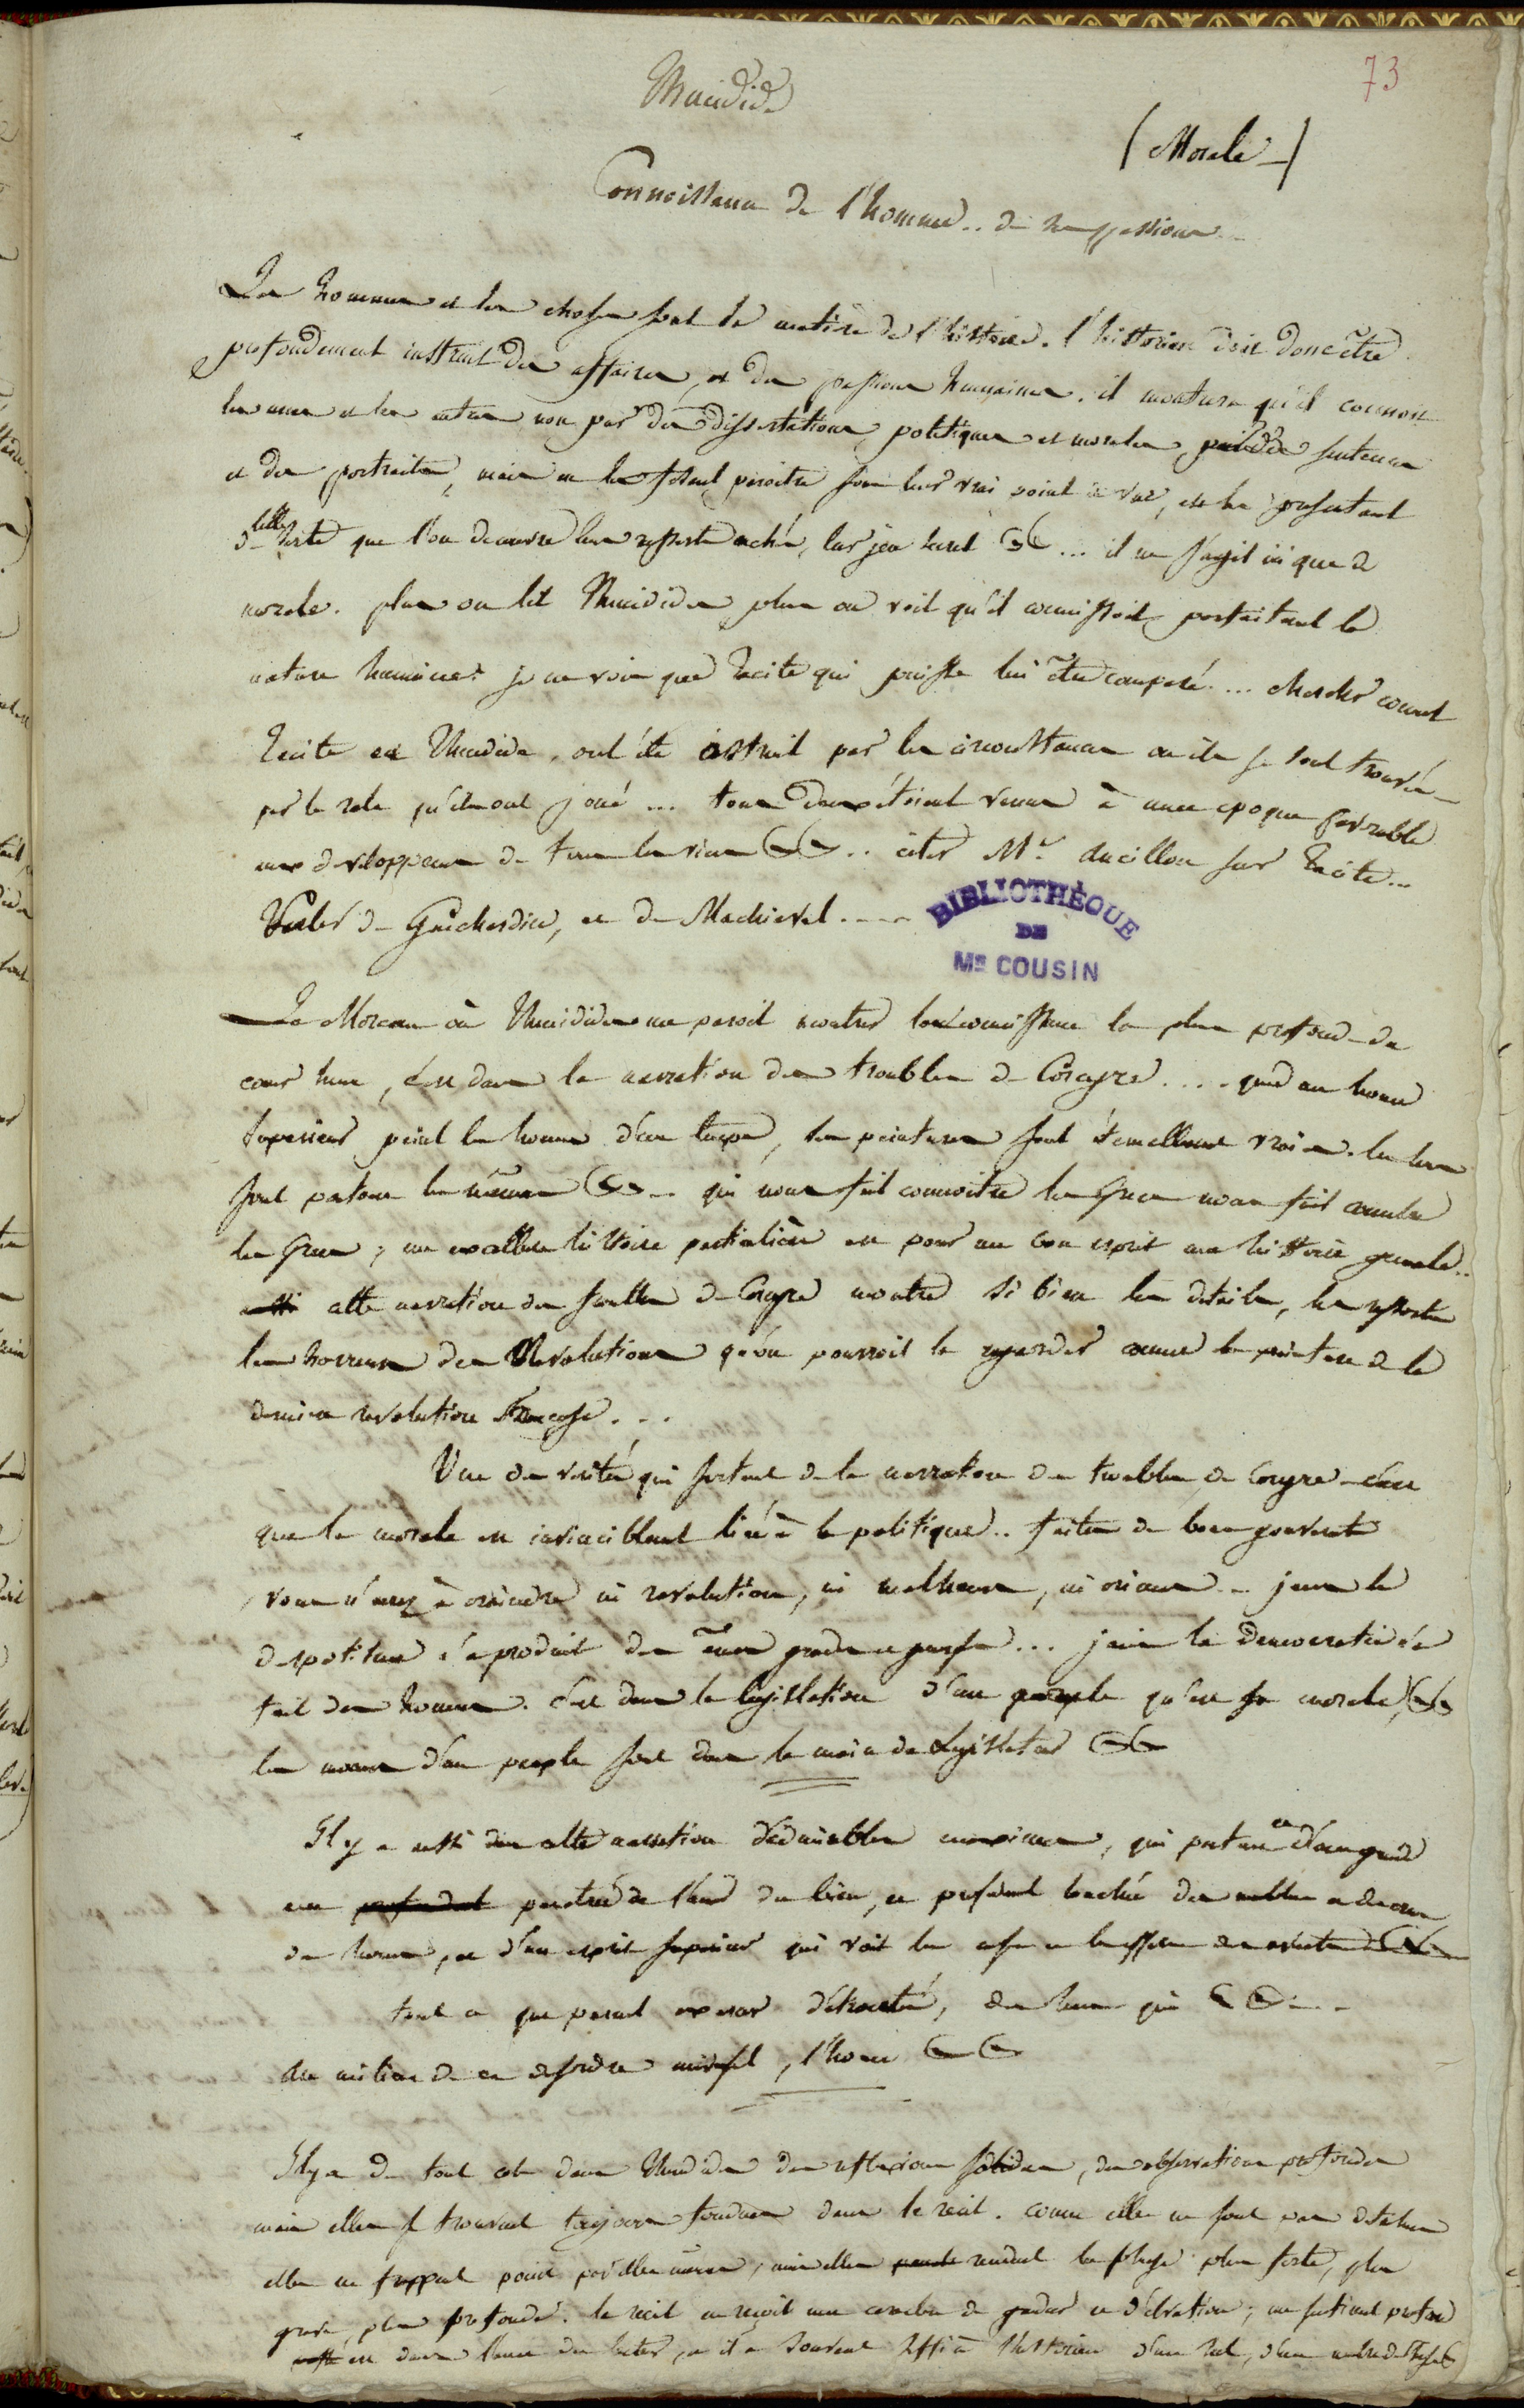 73
Thucidide
(Morale)
Connoissance de l'homme.. de ses passions
Les hommes et les choses sont la matiere de l'histoire. l'historien doit donc être
profondement instruit des affaires, et des passions humaines. il montrera qu'il connoit
les unes et les autres non par des dissertations politiques et morales, sentences
et des portraits, mais en les faisant paroitre sous leur vrai point de vue, en les presentant
de telle sorte que l'on decouvre leurs ressorts cachés, leur jeu secret &c... il ne s'agit ici que de
morale. plus on lit Thucidide plus on voit qu'il connoissoit parfaitement la
nature humaine. je ne vois que Tacite qui puisse lui être comparé.... chercher comment
Tacite et Thucidide, ont été instruit par les circonstances ou ils se sont trouvés
par le role qu'ils ont joué ... tous deux étoient venus à une epoque favorable
aux developpemens de tous les vices &c.. citer Mr. Ancillon sur Tacite...
Parler de Guichardin, et de Machiavel....
BIBLIOTHÈQUE
DE
Mr COUSIN
Le Morceau où Thucidide me paroit montrer la connoissance la plus profonde du
coeur hum, c'est dans la narration des troubles de Corcyre.... quand un homme
superieur peint les hommes d'un temps, ses peintures sont éternellement vraies. les hommes
sont partout les mêmes &c.. qui nous fait connoitre les Grecs nous fait connoitre
les Grecs; une excellente histoire particulière est pour un bon esprit une histoire generale..
cette narration des troubles de Corcyre montre si bien les details, les ressorts
les horreurs des Revolutions qu'on pourroit la regarder comme la peinture de la
derniere revolution françoise...
Une des verités qui sortent de la narration des troubles de Corcyre c'est
que la morale est invinciblement liée à la politique.. faites de bons gouvernements
vous n'aurez à craindre ni revolutions, ni malheurs, ni crimes.. jamais le
despotisme n'a produit des âmes grandes et ... jamais la democratie n'a
fait des hommes. c'est dans la legislation d'un peuple qu'est sa morale, &c
les moeurs d'un peuple sont dans la main du Legislateur &c
Il y a aussi dans cette narration d'admirables maximes, qui partent d'un grand
penetré de l'amour du bien, et profondement touché des
des hommes, et d'un esprit superieur qui voit les causes et les effets des &c
tout ce que peuvent des hommes qui &c...
Au milieu de ce desordre universel, l'homme &c
Il y a de tout cela dans Thucidide des reflexions solides, des observations profondes
mais elles se trouvent toujours fondues dans le recit. comme elles ne sont pas detachées
elles ne frappent point par elles mêmes, mais elles rendent la phrase plus forte, plus
grave, plus profonde. le recit en reçoit un caractere de grandeur et d'élévation; un sentiment profond
dans l'ame du lecteur, et il a souvent suffi à l'historien d'un mot, d'un membre de phrase